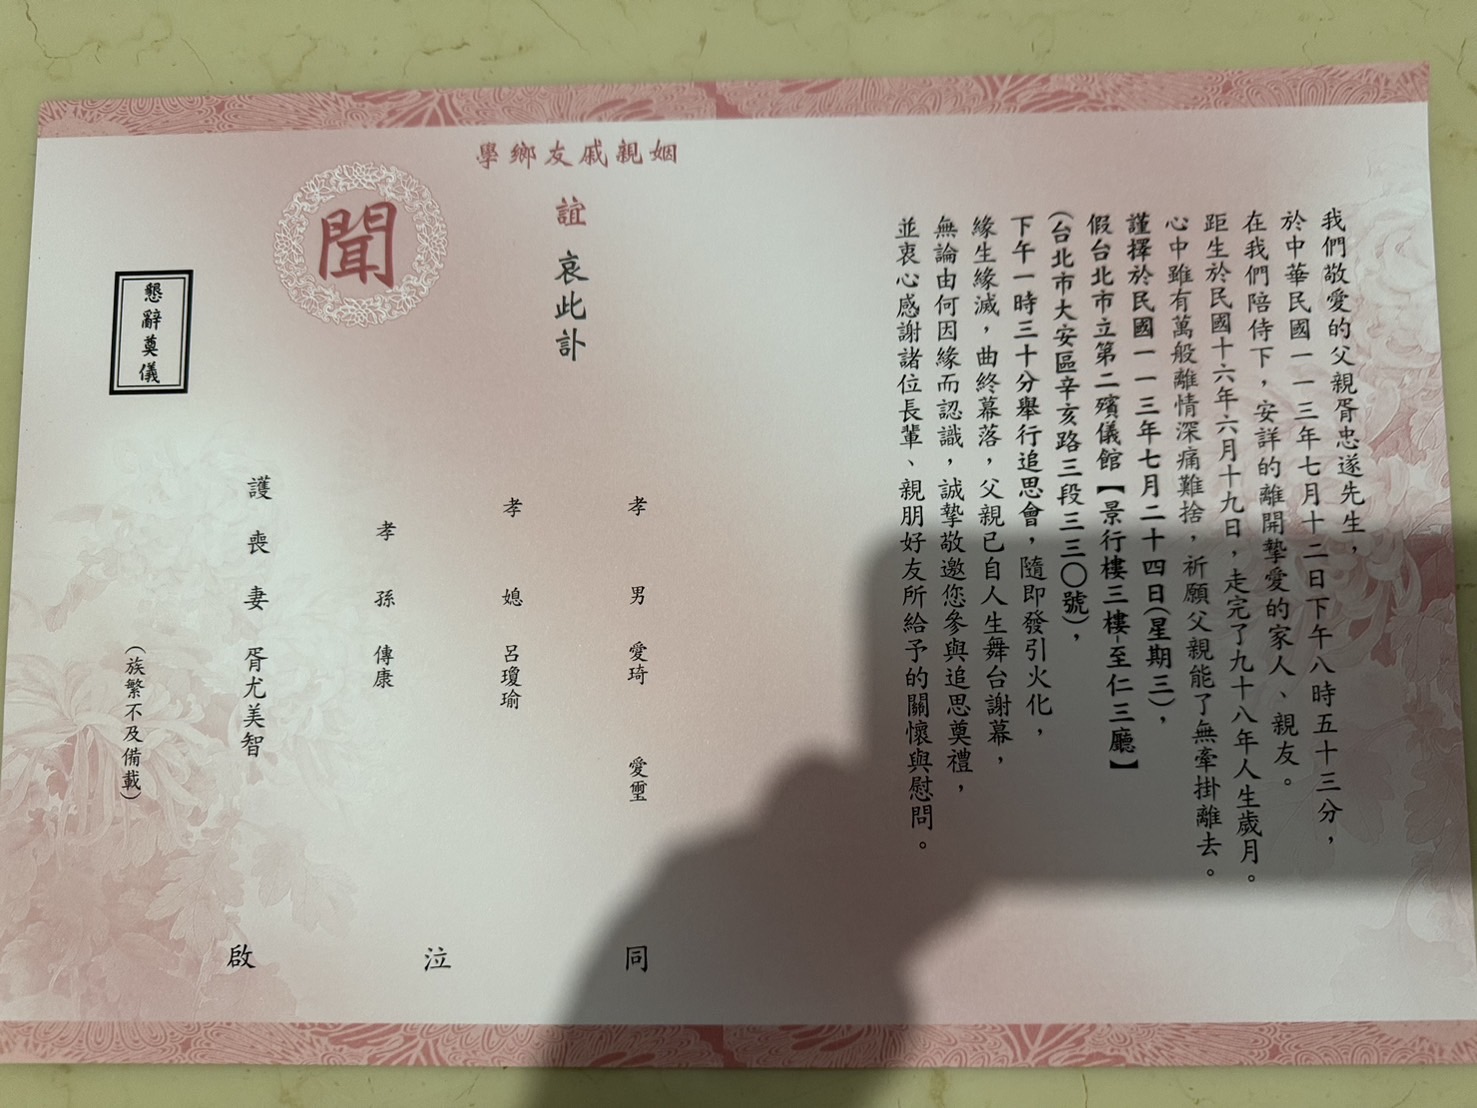 我們敬愛的父親胥忠遂先生，
於中華民國一一三年七月十二日下午八時五十三分，
在我們陪侍下，安詳的離開摯愛的家人、親友。
距生於民國十六年六月十九日，走完了九十八年人生歲月。
心中雖有萬般離情深痛難捨，祈願父親能了無牽掛離去。
謹擇於民國一一三年七月二十四日(星期三)，
假台北市立第二殯儀館【景行樓三樓-至仁三廳】
(台北市大安區辛亥路三段三三〇號)，
下午一時三十分舉行追思會，隨即發引火化，
緣生緣滅，曲終幕落，父親已自人生舞台謝幕，
無論由何因緣而認識，誠摯敬邀您參與追思奠禮，
並衷心感謝諸位長輩、親朋好友所給予的關懷與慰問。
姻親戚友鄉學
誼 哀此訃
聞
孝男 愛琦 愛璽
孝媳 呂瓊瑜
孝孫 傳康
護喪妻 胥尤美智
(族繁不及備載)
同泣啟
懇辭奠儀